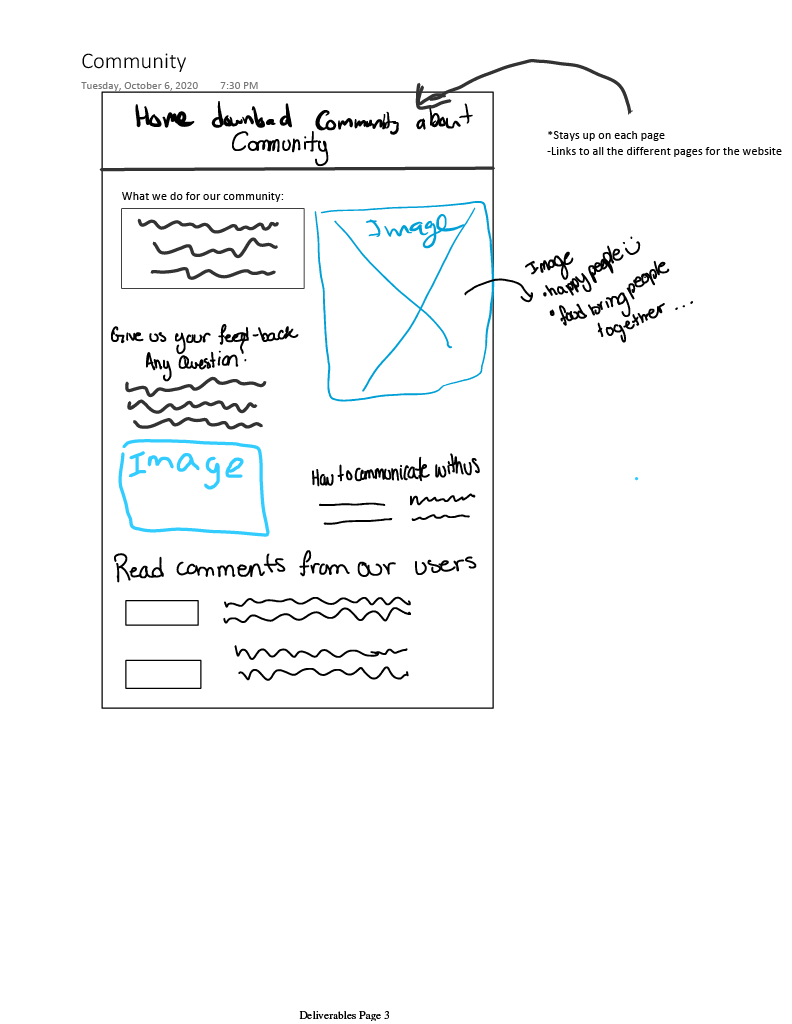 Community
Tuesday, October 6, 2020 7:30 PM
Home download Community about
Community
*Stays up on each page
-Links to all the different pages for the website
What we do for our community:
Image
Image
• happy people
• food bring people
together ...
Give us your feed-back
Any Question?
Image
How to communicate with us
Read comments from our users
Deliverables Page 3